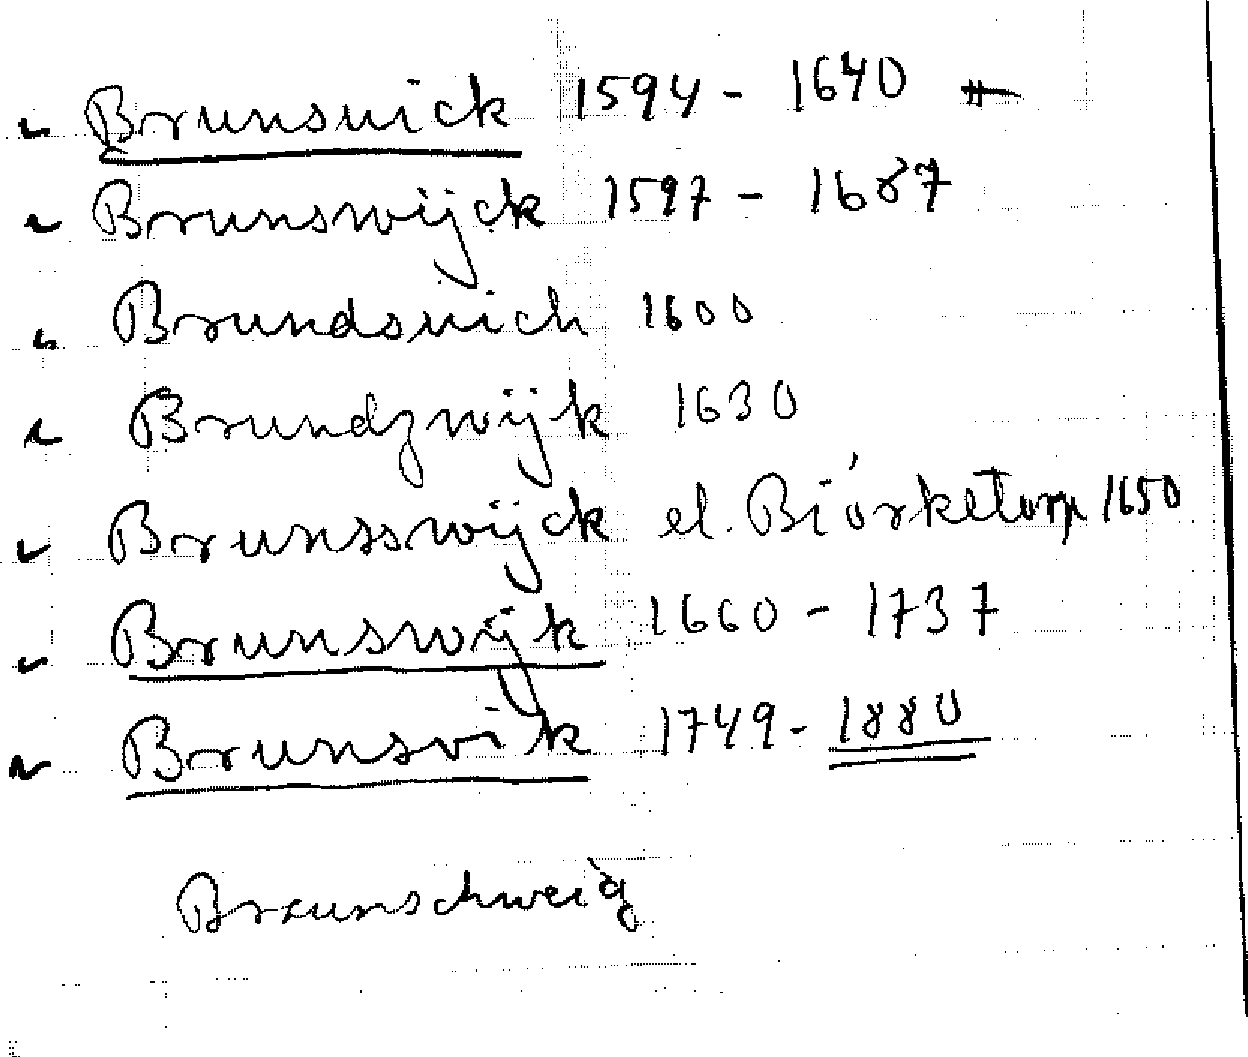 Brunsuick 1594 - 1640
Brunswijck 1597 - 1687
Brundsuich 1600
Brundzwijk 1630
Brunsswijck el. Biórketorp 1650
Brunswijk 1660 - 1737
Brunsvik 1749 - 1880
Braunschweig